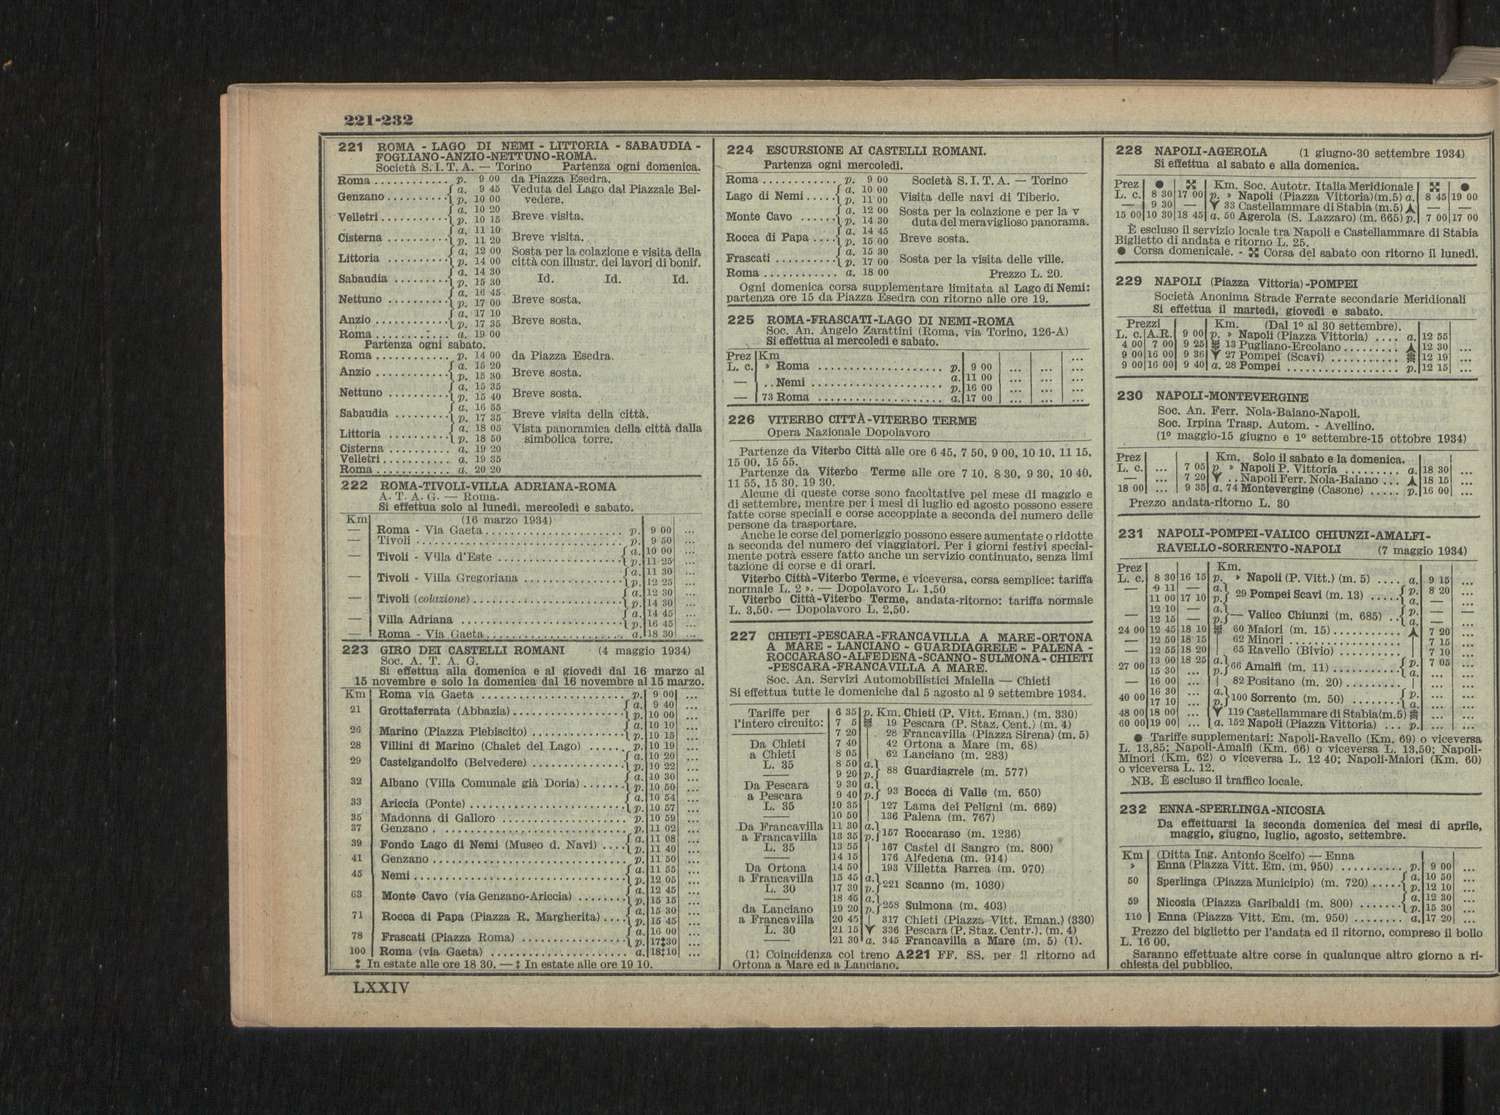 221-232
221 ROMA - LAGO DI NEMI - LITTORIA - SABAUDIA -
FOGLIANO-ANZIO-NETTUNO-ROMA.
Società S. I. T. A. — Torino Partenza ogni domenica.
Roma . . . . . . . . . . . p. 9 00 da Piazza Esedra.
Genzano . . . . . . . . . { a. 9 45 Veduta del Lago dal Piazzale Bel-
p. 10 00 vedere.
Velletri . . . . . . . . . . { a. 10 20
p. 10 15 Breve visita.
Cisterna . . . . . . . . . { a. 11 10
p. 11 20 Breve visita.
Littoria . . . . . . . . . { a. 12 00 Sosta per la colazione e visita della
p. 14 00 città con illustr. dei lavori di bonif.
Sabaudia . . . . . . . . { a. 14 30
p. 15 30 Id. Id. Id.
Nettuno . . . . . . . . . { a. 16 45
p. 17 00 Breve sosta.
Anzio . . . . . . . . . . . { a. 17 10
p. 17 35 Breve sosta.
Roma . . . . . . . . . . . a. 19 00
Partenza ogni sabato.
Roma . . . . . . . . . . . p. 14 00 da Piazza Esedra.
Anzio . . . . . . . . . . . { a. 15 20
p. 15 30 Breve sosta.
Nettuno . . . . . . . . . { a. 15 35
p. 15 40 Breve sosta.
Sabaudia . . . . . . . . { a. 16 55
p. 17 35 Breve visita della città.
Littoria . . . . . . . . . { a. 18 05 Vista panoramica della città dalla
p. 18 50 simbolica torre.
Cisterna . . . . . . . . . a. 19 20
Velletri . . . . . . . . . . a. 19 35
Roma . . . . . . . . . . . a. 20 20
222 ROMA-TIVOLI-VILLA ADRIANA-ROMA
A. T. A. G. — Roma.
Si effettua solo al lunedì, mercoledì e sabato.
Km (16 marzo 1934)
— Roma - Via Gaeta . . . . . . . . . p. 9 00 ...
— Tivoli . . . . . . . . . . . . . . . p. 9 50 ...
— Tivoli - Villa d'Este . . . . . . { a. 10 00 ...
p. 11 25 ...
— Tivoli - Villa Gregoriana . . . { a. 11 30 ...
p. 12 25 ...
— Tivoli (colazione) . . . . . . . . { a. 12 30 ...
p. 14 30 ...
— Villa Adriana . . . . . . . . . . { a. 14 45 ...
p. 16 45 ...
— Roma - Via Gaeta . . . . . . . . . a. 18 30 ...
223 GIRO DEI CASTELLI ROMANI (4 maggio 1934)
Soc. A. T. A. G.
Si effettua alla domenica e al giovedì dal 16 marzo al
15 novembre e solo la domenica dal 16 novembre al 15 marzo.
Km Roma via Gaeta . . . . . . . . . . p. 9 00 ...
21 Grottaferrata (Abbazia) . . . . . { a. 9 40 ...
p. 10 00 ...
26 Marino (Piazza Plebiscito) . . . { a. 10 10 ...
p. 10 15 ...
28 Villini di Marino (Chalet del Lago) . . . p. 10 19 ...
29 Castelgandolfo (Belvedere) . . . { a. 10 20 ...
p. 10 22 ...
32 Albano (Villa Comunale già Doria) . . . { a. 10 30 ...
p. 10 50 ...
33 Ariccia (Ponte) . . . . . . . . . . { a. 10 54 ...
p. 10 57 ...
35 Madonna di Galloro . . . . . . . . p. 10 59 ...
37 Genzano . . . . . . . . . . . . . . p. 11 02 ...
39 Fondo Lago di Nemi (Museo d. Navi) . . . { a. 11 08 ...
p. 11 40 ...
41 Genzano . . . . . . . . . . . . . . p. 11 50 ...
45 Nemi . . . . . . . . . . . . . . . . { a. 11 55 ...
p. 12 05 ...
63 Monte Cavo (via Genzano-Ariccia) . . . { a. 12 45 ...
p. 15 15 ...
71 Rocca di Papa (Piazza R. Margherita) . . . { a. 15 30 ...
p. 15 45 ...
78 Frascati (Piazza Roma) . . . . . { a. 16 00 ...
p. 17‡30 ...
100 Roma (via Gaeta) . . . . . . . . . a. 18‡10 ...
‡ In estate alle ore 18 30. — ‡ In estate alle ore 19 10.
LXXIV
224 ESCURSIONE AI CASTELLI ROMANI.
Partenza ogni mercoledì.
Roma . . . . . . . . . . . p. 9 00 Società S. I. T. A. — Torino
Lago di Nemi . . . . . { a. 10 00
p. 11 00 Visita delle navi di Tiberio.
Monte Cavo . . . . . . { a. 12 00 Sosta per la colazione e per la v
p. 14 30 duta del meraviglioso panorama.
Rocca di Papa . . . . { a. 14 45
p. 15 00 Breve sosta.
Frascati . . . . . . . . . { a. 15 30
p. 17 00 Sosta per la visita delle ville.
Roma . . . . . . . . . . . a. 18 00 Prezzo L. 20.
Ogni domenica corsa supplementare limitata al Lago di Nemi:
partenza ore 15 da Piazza Esedra con ritorno alle ore 19.
225 ROMA-FRASCATI-LAGO DI NEMI-ROMA
Soc. An. Angelo Zarattini (Roma, via Torino, 126-A)
Si effettua al mercoledì e sabato.
Prez Km ...
L. c. » Roma . . . . . . . . . . . p. 9 00 ... ... ...
— . . Nemi . . . . . . . . . . . . a. 11 00 ... ... ...
p. 16 00 ... ... ...
— 73 Roma . . . . . . . . . . . a. 17 00 ... ... ...
226 VITERBO CITTÀ-VITERBO TERME
Opera Nazionale Dopolavoro
Partenze da Viterbo Città alle ore 6 45, 7 50, 9 00, 10 10, 11 15,
15 00, 15 55.
Partenze da Viterbo Terme alle ore 7 10, 8 30, 9 30, 10 40,
11 55, 15 30, 19 30.
Alcune di queste corse sono facoltative pel mese di maggio e
di settembre, mentre per i mesi di luglio ed agosto possono essere
fatte corse speciali e corse accoppiate a seconda del numero delle
persone da trasportare.
Anche le corse del pomeriggio possono essere aumentate o ridotte
a seconda del numero dei viaggiatori. Per i giorni festivi special-
mente potrà essere fatto anche un servizio continuato, senza limi
tazione di corse e di orari.
Viterbo Città-Viterbo Terme, e viceversa, corsa semplice: tariffa
normale L. 2 ». — Dopolavoro L. 1,50
Viterbo Città-Viterbo Terme, andata-ritorno: tariffa normale
L. 3,50. — Dopolavoro L. 2,50.
227 CHIETI-PESCARA-FRANCAVILLA A MARE-ORTONA
A MARE - LANCIANO - GUARDIAGRELE - PALENA -
ROCCARASO-ALFEDENA-SCANNO-SULMONA-CHIETI
-PESCARA-FRANCAVILLA A MARE.
Soc. An. Servizi Automobilistici Maiella — Chieti
Si effettua tutte le domeniche dal 5 agosto al 9 settembre 1934.
Tariffe per
l'intero circuito:
Da Chieti
a Chieti
L. 35
Da Pescara
a Pescara
L. 35
Da Francavilla
a Francavilla
L. 35
Da Ortona
a Francavilla
L. 30
da Lanciano
a Francavilla
L. 30
6 35 p. Km. Chieti (P. Vitt. Eman.) (m. 330)
7 5 19 Pescara (P. Staz. Cent.) (m. 4)
7 20 28 Francavilla (Piazza Sirena) (m. 5)
7 40 42 Ortona a Mare (m. 68)
8 05 62 Lanciano (m. 283)
8 50 a.
9 20 p. } 88 Guardiagrele (m. 577)
9 30 a.
9 40 p. } 93 Bocca di Valle (m. 650)
10 35 127 Lama dei Peligni (m. 669)
10 50 136 Palena (m. 767)
11 30 a.
13 35 p. } 157 Roccaraso (m. 1236)
13 55 167 Castel di Sangro (m. 800)
14 15 176 Alfedena (m. 914)
14 50 193 Villetta Barrea (m. 970)
15 45 a.
17 30 p. } 221 Scanno (m. 1030)
18 45 a.
19 20 p. } 258 Sulmona (m. 403)
20 45 317 Chieti (Piazza Vitt. Eman.) (330)
21 15 336 Pescara (P. Staz. Centr.). (m. 4)
21 30 a. 345 Francavilla a Mare (m. 5) (1).
(1) Coincidenza col treno A221 FF. SS. per il ritorno ad
Ortona a Mare ed a Lanciano.
228 NAPOLI-AGEROLA (1 giugno-30 settembre 1934)
Si effettua al sabato e alla domenica.
Prez ● ⌘ Km. Soc. Autotr. Italia Meridionale ⌘ ●
L. c. 8 30 17 00 p. » Napoli (Piazza Vittoria) (m.5) a. 8 45 19 00
— 9 30 — 33 Castellammare di Stabia (m.5) — —
15 00 10 30 18 45 a. 50 Agerola (S. Lazzaro) (m. 665) p. 7 00 17 00
È escluso il servizio locale tra Napoli e Castellammare di Stabia
Biglietto di andata e ritorno L. 25.
● Corsa domenicale. - ⌘ Corsa del sabato con ritorno il lunedì.
229 NAPOLI (Piazza Vittoria)-POMPEI
Società Anonima Strade Ferrate secondarie Meridionali
Si effettua il martedì, giovedì e sabato.
Prezzi Km. (Dal 1º al 30 settembre).
L. c. A.R. 9 00 p. » Napoli (Piazza Vittoria) . . . . a. 12 55
4 00 7 00 9 25 13 Pugliano-Ercolano . . . . . . . 12 30 ...
9 00 16 00 9 36 27 Pompei (Scavi) . . . . . . . . . 12 19 ...
9 00 16 00 9 40 a. 28 Pompei . . . . . . . . . . . . p. 12 15 ...
230 NAPOLI-MONTEVERGINE
Soc. An. Ferr. Nola-Baiano-Napoli.
Soc. Irpina Trasp. Autom. - Avellino.
(1º maggio-15 giugno e 1º settembre-15 ottobre 1934)
Prez Km. Solo il sabato e la domenica.
L. c. ... 7 05 p. » Napoli P. Vittoria . . . . . . . . a. 18 30 ...
— ... 7 20 . . Napoli Ferr. Nola-Baiano . . . 18 15 ...
18 00 ... 9 35 a. 74 Montevergine (Casone) . . . . . p. 16 00 ...
Prezzo andata-ritorno L. 30
231 NAPOLI-POMPEI-VALICO CHIUNZI-AMALFI-
RAVELLO-SORRENTO-NAPOLI (7 maggio 1934)
Prez Km.
L. c. 8 30 16 15 p. » Napoli (P. Vitt.) (m. 5) . . . . a. 9 15 ...
— 9 11 — a. } 29 Pompei Scavi (m. 13) . . . . . { p. 8 20 ...
11 00 17 10 p. a. — ...
12 10 — a. } — Valico Chiunzi (m. 685) . . { p. — —
— 12 15 — p. a. — ...
24 00 12 45 18 10 60 Maiori (m. 15) . . . . . . . . . 7 20 ...
— 12 50 18 15 62 Minori . . . . . . . . . . . . . 7 15 ...
— 12 55 18 20 65 Ravello (Bivio) . . . . . . . . 7 10 ...
27 00 13 00 18 25 a. } 66 Amalfi (m. 11) . . . . . . . . { p. 7 05 ...
15 30 ... p. a. ... ...
— 16 00 ... 82 Positano (m. 20) . . . . . . . . ... ...
40 00 16 30 ... a. } 100 Sorrento (m. 50) . . . . . . . { p. ... ...
17 10 ... p. a. ... ...
48 00 18 00 ... 119 Castellammare di Stabia (m.5) ... ...
60 00 19 00 ... a. 152 Napoli (Piazza Vittoria) . . . p. ... ...
● Tariffe supplementari: Napoli-Ravello (Km. 69) o viceversa
L. 13,85; Napoli-Amalfi (Km. 66) o viceversa L. 13,50; Napoli-
Minori (Km. 62) o viceversa L. 12 40; Napoli-Maiori (Km. 60)
o viceversa L. 12.
NB. È escluso il traffico locale.
232 ENNA-SPERLINGA-NICOSIA
Da effettuarsi la seconda domenica dei mesi di aprile,
maggio, giugno, luglio, agosto, settembre.
Km (Ditta Ing. Antonio Scelfo) — Enna
» Enna (Piazza Vitt. Em. (m. 950) . . . . . . . . p. 9 00 ...
50 Sperlinga (Piazza Municipio) (m. 720) . . . . . { a. 10 50 ...
p. 12 10 ...
59 Nicosia (Piazza Garibaldi (m. 800) . . . . . . . { a. 12 30 ...
p. 15 30 ...
110 Enna (Piazza Vitt. Em. (m. 950) . . . . . . . . a. 17 20 ...
Prezzo del biglietto per l'andata ed il ritorno, compreso il bollo
L. 16 00.
Saranno effettuate altre corse in qualunque altro giorno a ri-
chiesta del pubblico.